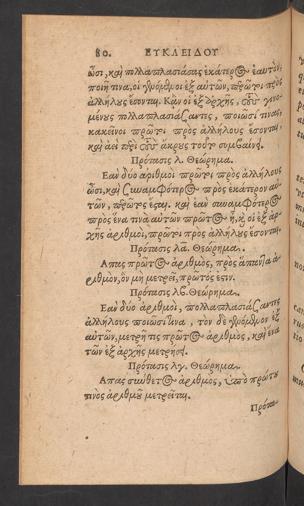 80. ΕΥΚΛΕΙΔΟΥ
ὦσι, καὶ πολλαπλασιάσας ἑκάτερος ἑαυτὸν,
ποιῇ τινα, οἱ γενόμενοι ἐξ αὐτῶν, πρῶτοι πρὸς
ἀλλήλους ἔσονται. Κἂν οἱ ἐξ ἀρχῆς, τοὺς γενο-
μένους πολλαπλασιάζαντες, ποιῶσί τινας,
κακεῖνοι πρῶτοι πρὸς ἀλλήλους ἔσονται,
καὶ ἀεὶ περὶ τοὺς ἄκρους τοῦτο συμβαίνει.
Πρότασις λ. Θεώρημα.
Εὰν δύο ἀριθμοὶ πρῶτοι πρὸς ἀλλήλους
ὦσι, καὶ συναμφότερος πρὸς ἑκάτερον αὐ-
τῶν, πρῶτος ἔσται. καὶ ἐὰν συναμφότερος
πρὸς ἕνα τινὰ αὐτῶν πρῶτος ᾖ, καὶ οἱ ἐξ ἀρ-
χῆς ἀριθμοὶ, πρῶτοι πρὸς ἀλλήλους ἔσονται.
Πρότασις λα. Θεώρημα.
Απας πρῶτος ἀριθμὸς, πρὸς ἅπαντα ἀ-
ριθμὸν, ὃν μὴ μετρεῖ, πρῶτός ἐστιν.
Πρότασις λβ. Θεώρημα.
Εὰν δύο ἀριθμοὶ, πολλαπλασιάζαντες
ἀλλήλους ποιῶσί τινα, τὸν δὲ γενόμενον ἐξ
αὐτῶν, μετρῇ τις πρῶτος ἀριθμὸς, καὶ ἕνα
τῶν ἐξ ἀρχῆς μετρήσει.
Πρότασις λγ. Θεώρημα.
Απας σύνθετος ἀριθμὸς, ὑπὸ πρώτου
τινὸς ἀριθμοῦ μετρεῖται.
Πρότα-